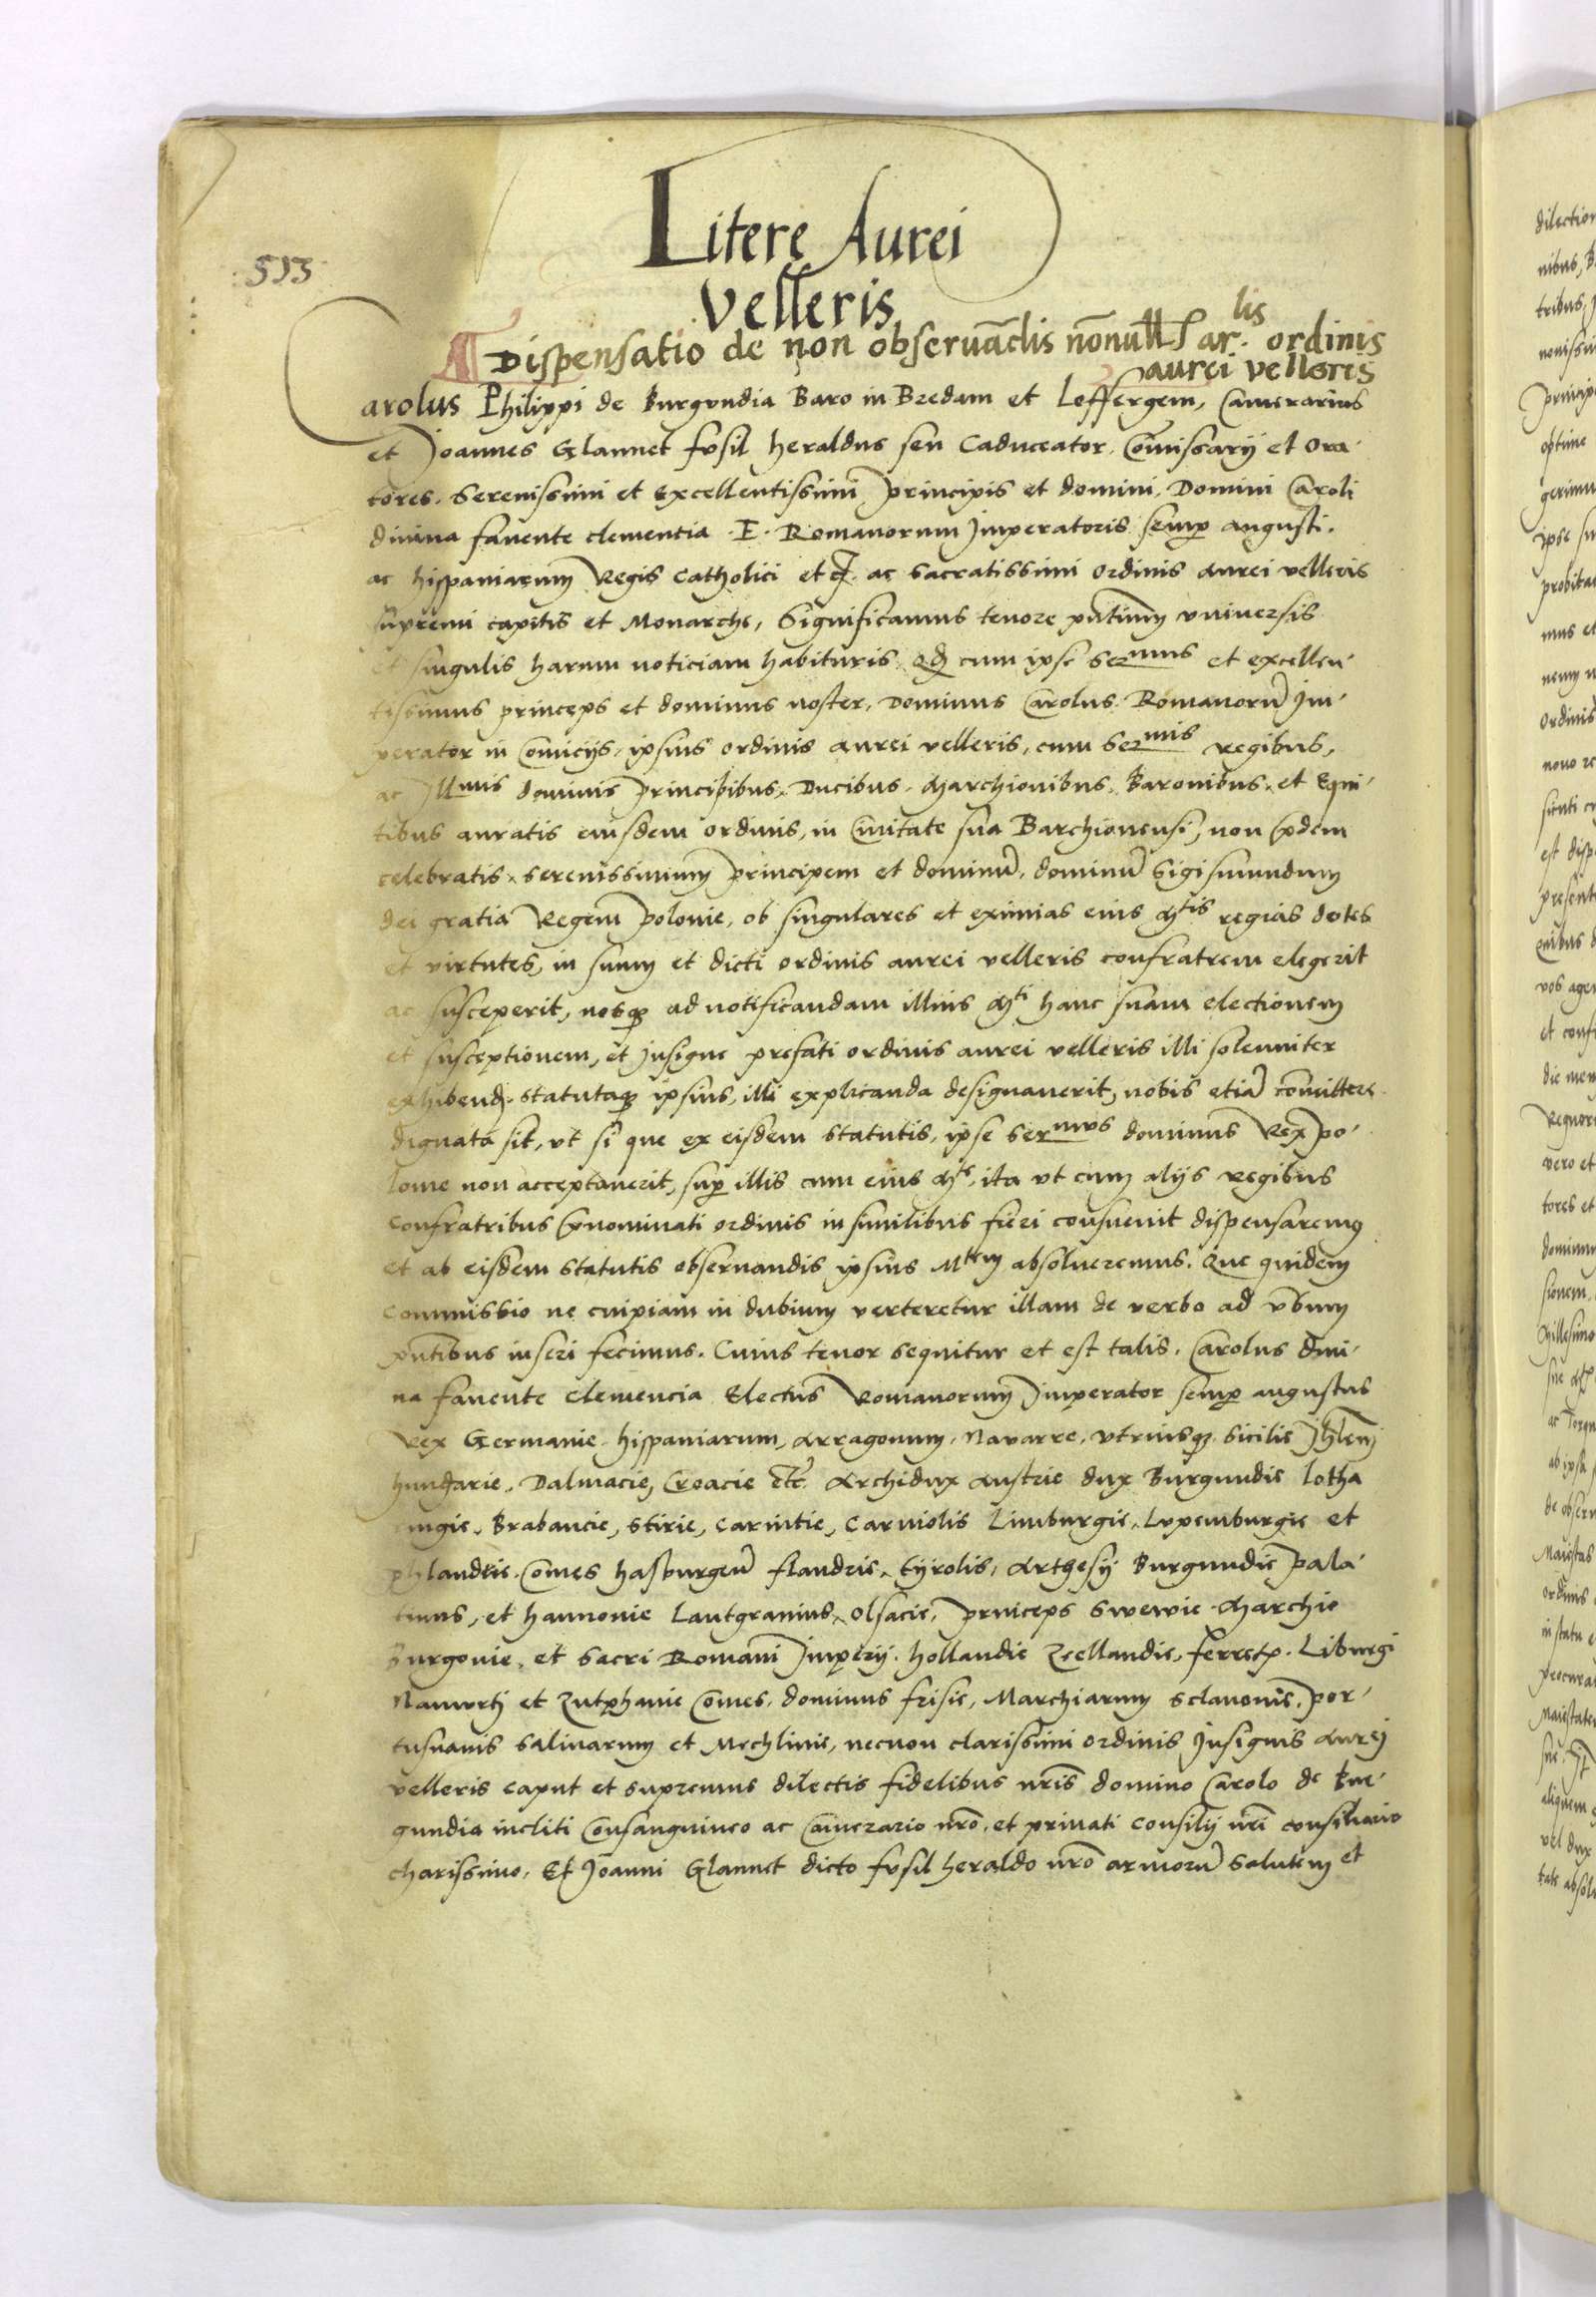 Litere Aurei
513
Velleris
Dispensatio de non obseruādis nōnull ar. lis ordinis
aurei velleris
Carolus Philippi de Burgundia Baro in Bredam et Loffergem, Camerarius
et Joannes Glannet fusil heraldus seu Caduceator, Comissarij et Ora-
tores. Serenissimi et Excellentissimi principis et domini, Domini Caroli
diuina fauente clementia .E. Romanorum Imperatoris semp augusti.
ac hispaniarum Regis Catholici etc. ac sacratissimi ordinis aurei velleris
supremi capitis et Monarche, Significamus tenore pntium vniuersis
et singulis harum noticiam habituris. qd cum ipse Sermus et excellen-
tissimus princeps et dominus noster, Dominus Carolus Romanorū Im-
perator in Comicijs, ipsius ordinis aurei velleris, cum Sermis regibus,
ac Illmis dominis Principibus, Ducibus, Marchionibus, Baronibus, et Equi-
tibus auratis eiusdem ordinis, in Ciuitate sua Barchionensi, non pdem
celebratis, serenissimum principem et dominū, dominū Sigismundum
dei gratia Regem polonie, ob singulares et eximias eius Mtis regias dotes
et virtutes, in suum et dicti ordinis aurei velleris confratrem elegerit
ac susceperit, nosq ad notificandam illius Mti hanc suam electionem
et susceptionem, et Insigne prefati ordinis aurei velleris illi solenniter
exhibend, statutaq ipsius, illi explicanda designauerit, nobis etiā comittere
dignata sit, vt si que ex eisdem statutis, ipse sermus dominus Rex po-
lonie non acceptauerit, sup illis cum eius Mte, ita vt cum alijs regibus
confratribus pnominati ordinis in similibus fieri consueuit dispensaremus
et ab eisdem statutis obseruandis ipsius Mtem absolueremus. Que quidem
Commissio ne cuipiam in dubium verteretur illam de verbo ad vbum
pntibus inseri fecimus. Cuius tenor sequitur et est talis. Carolus diui-
na fauente clemencia Electus Romanorum Imperator semp augustus
Rex Germanie, hispaniarum, Arragonum, Nauarre, vtriusq Sicilie Jhlem
hungarie, Dalmacie, Croacie etc. Archidux Austrie dux Burgundie Lotha
ringie, Brabancie, Stirie, Carintie, Carniolis Limburgie, Luxemburgie et
Comes hasburgeñ flandrie, tyrolis, Arthesij Burgundie pala-
tinus, et hannonie Lantgrauius, Olsacie, princeps Swewie Marchio
Burgonie, et Sacri Romani Imperij. hollandie Zeellandie, ferret. Liburgi
Namurci et Zutphanie Comes, dominus frisie, Marchiarum Sclauonie, por-
tusnauis Salinarum et Mechlinie, necnon clarissimi ordinis Insignis Aurej
velleris caput et supremus dilectis fidelibus nris domino Carolo de Bur-
gundia incliti Consanguineo ac Camerario nro, et priuati consilij nri consiliario
charissimo, Et Joanni Glannet dicto fusil heraldo nro armorū Salutem et